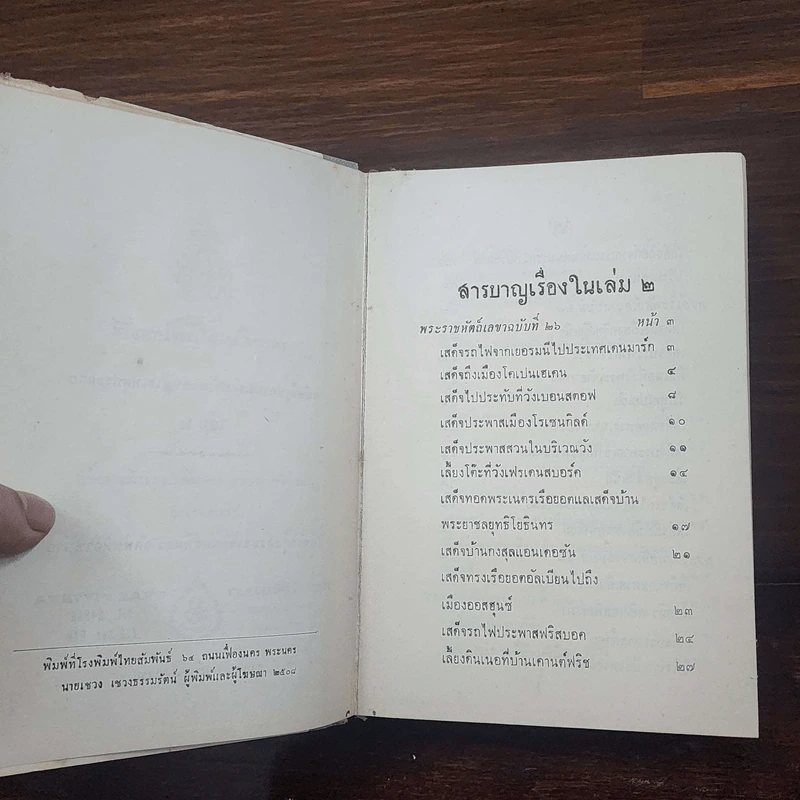 พิมพ์ที่โรงพิมพ์ไทยสัมพันธ์ ๖๔ ถนนเฟื่องนคร พระนคร
นายเชวง เชวงธรรมรัตน์ ผู้พิมพ์และผู้โฆษณา ๒๕๐๘
สารบาญเรื่องในเล่ม ๒
พระราชหัตถ์เลขาฉบับที่ ๒๖ หน้า ๓
เสด็จรถไฟจากเยอรมนีไปประเทศเดนมาร์ก ๓
เสด็จถึงเมืองโคเปนเฮเคน ๔
เสด็จไปประทับที่วังเบอนสตอฟ ๘
เสด็จประพาสเมืองโรเซนกิลด์ ๑๐
เสด็จประพาสสวนในบริเวณวัง ๑๑
เลี้ยงโต๊ะที่วังเฟรเดนสบอร์ค ๑๔
เสด็จทอดพระเนตรเรือยอตแลเสด็จบ้าน
พระยาชลยุทธิโยธินทร ๑๗
เสด็จบ้านกงสุลแอนเดอซัน ๒๑
เสด็จทรงเรือยอตอัลเบียนไปถึง
เมืองออสฮุนซ์ ๒๓
เสด็จรถไฟประพาสฟริสบอด ๒๔
เลี้ยงดินเนอที่บ้านเคานต์ฟริช ๒๗